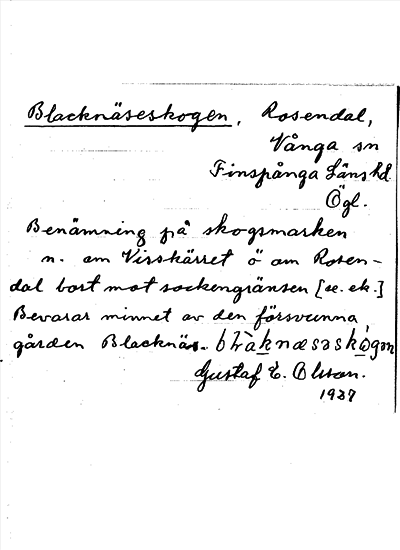 Blacknäseskogen, Rosendal,
Vånga sn
Finspånga Läns hd
Ögl.
Benämning på skogsmarken
n. om Visskärret ö om Rosen-
dal bort mot sockengränsen [se. ek.]
Bevarar minnet av den försvunna
gården Blacknäs. bɫàknæsəskógən
Gustaf E. Olsson.
1937